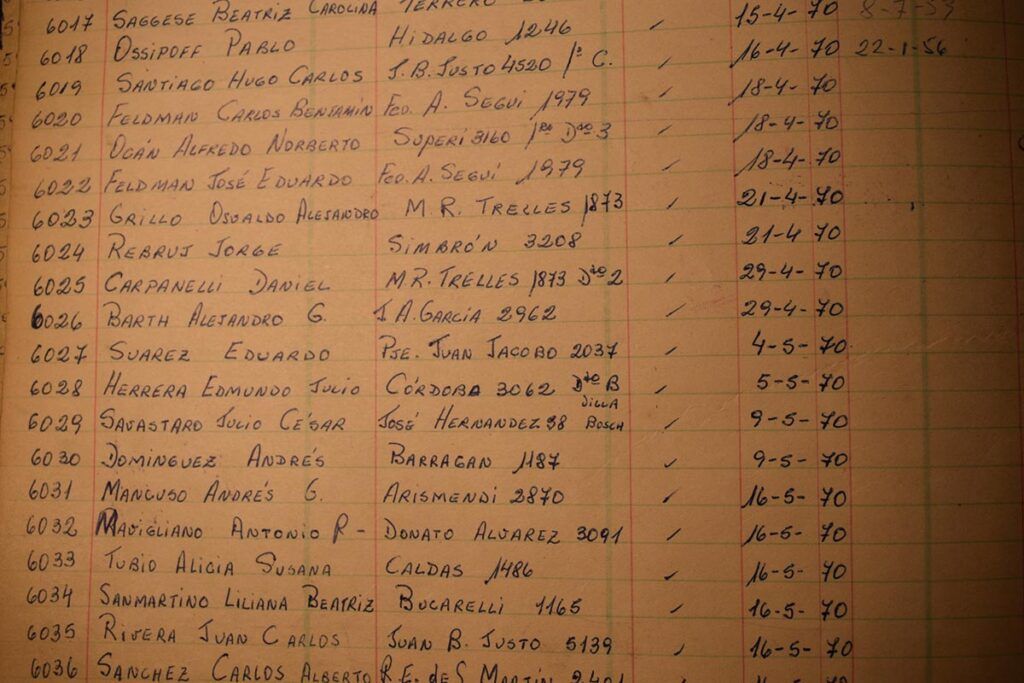 6017 SAGGESE BEATRIZ CAROLINA 15-4-70 8-7-53
6018 OSSIPOFF PABLO HIDALGO 1246 16-4-70 22-1-56
6019 SANTIAGO HUGO CARLOS J.B. JUSTO 4520 1º C. 18-4-70
6020 FELDMAN CARLOS BENJAMIN FCO. A. SEGUI 1979 18-4-70
6021 OCÁN ALFREDO NORBERTO SUPERÍ 3160 1ro Dto 3 18-4-70
6022 FELDMAN JOSÉ EDUARDO FCO. A. SEGUÍ 1979 21-4-70
6023 GRILLO OSVALDO ALEJANDRO M.R. TRELLES 1873 21-4-70
6024 REBRUJ JORGE SIMBRÓN 3208 29-4-70
6025 CARPANELLI DANIEL M.R. TRELLES 1873 Dto 2 29-4-70
6026 BARTH ALEJANDRO G. J.A. GARCIA 2962
6027 SUAREZ EDUARDO PJE. JUAN JACOBO 2037 4-5-70
6028 HERRERA EDMUNDO JULIO CÓRDOBA 3062 Dto B 5-5-70
VILLA
6029 SAVASTARO JULIO CÉSAR JOSÉ HERNANDEZ 38 BOSCH 9-5-70
6030 DOMINGUEZ ANDRÉS BARRAGAN 1187 9-5-70
6031 MANCUSO ANDRÉS G. ARISMENDI 2870 16-5-70
6032 MAVIGLIANO ANTONIO R- DONATO ALVAREZ 3091 16-5-70
6033 TUBIO ALICIA SUSANA CALDAS 1486 16-5-70
6034 SANMARTINO LILIANA BEATRIZ BUCARELLI 1165 16-5-70
6035 RIVERA JUAN CARLOS JUAN B. JUSTO 5139 16-5-70
6036 SANCHEZ CARLOS ALBERTO R.E. de S. MARTÍN 2401